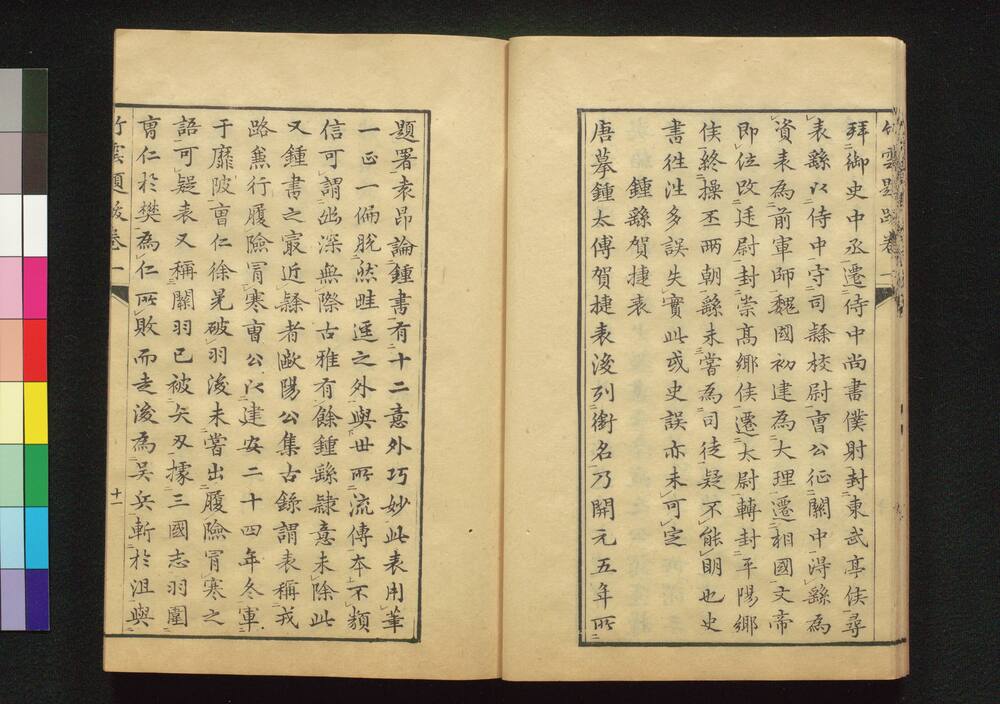 竹雲題跋卷一
拜御史中丞遷侍中尚書僕射封東武亭侯尋
表繇以侍中守司隸校尉曹公征關中得繇為
資表為前軍師魏國初建為大理遷相國文帝
即位改廷尉封崇髙鄉侯遷太尉轉封平陽鄉
侯終操丕兩朝繇未嘗為司徒疑不能明也史
書徃徃多誤失實此或史誤亦未可定
鍾繇賀捷表
唐摹鍾太傅賀捷表後列銜名乃開元五年所
題署袁昂論鍾書有十二意外巧妙此表用筆
一正一偏脫然畦逕之外與世所流傳本不類
信可謂幽深無際古雅有餘鍾繇隸意未除此
又鍾書之㝡近繇者歐陽公集古錄謂表稱戎
路兼行履險冐寒曹公以建安二十四年冬軍
于靡陂曹仁徐晃破羽後未嘗出履險冐寒之
語可疑表又稱關羽已被矢刃據三國志羽圍
曹仁於樊為仁所敗而走後為吳兵斬於沮與
竹雲題跋卷一
十一